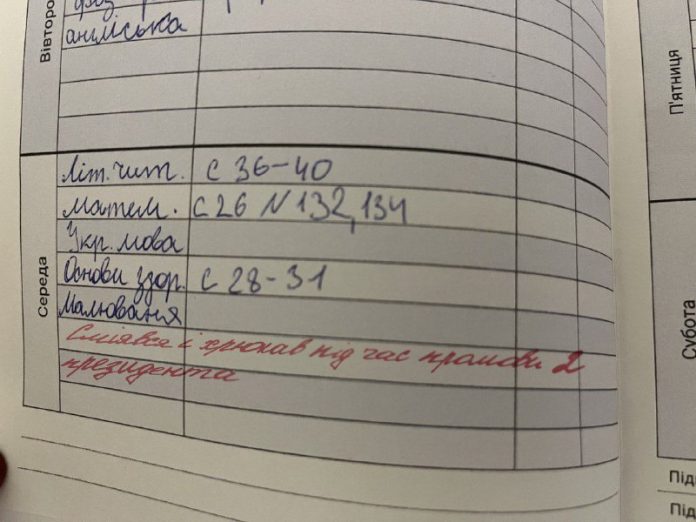 Вівторо
англіська
Середа
Літ. чит. С 36-40
матем. С 26 N 132, 134
Укр. мова
Основи здор. С 28-31
Малювання
Сміявся і хрюкав під час промови 2
президента
П'ятниця
Субота
Підп
Підп